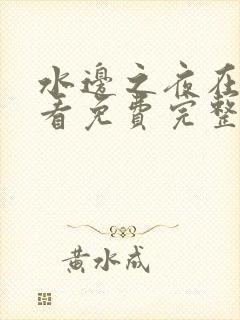 水邊之夜在
看免費完整
黃水成